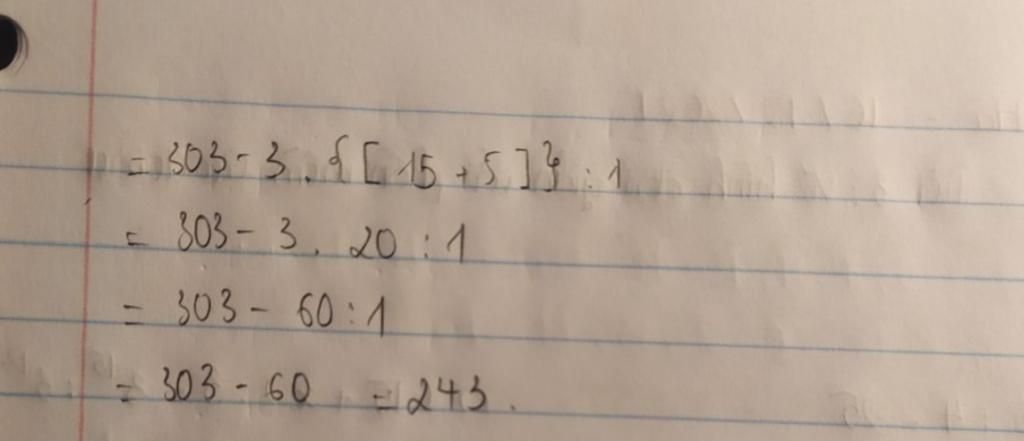 = 303 - 3 . {[ 15 + 5 ]} : 1
= 303 - 3 . 20 : 1
= 303 - 60 : 1
= 303 - 60 = 243.